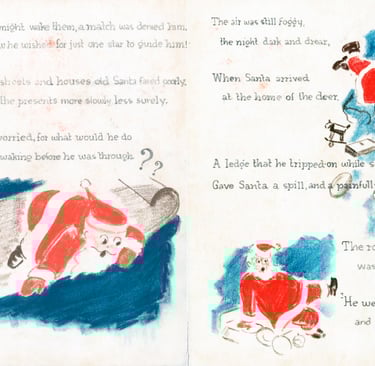 night wake them, a match was denied him,
he wished for just one star to guide him!
streets and houses old Santa fared poorly,
the presents more slowly, less surely.
worried, for what would he do
waking before he was through
??
The air was still foggy,
the night dark and drear,
When Santa arrived
at the home of the deer.
A ledge that he tripped on while
Gave Santa a spill, and a painfully
The
was
He
and